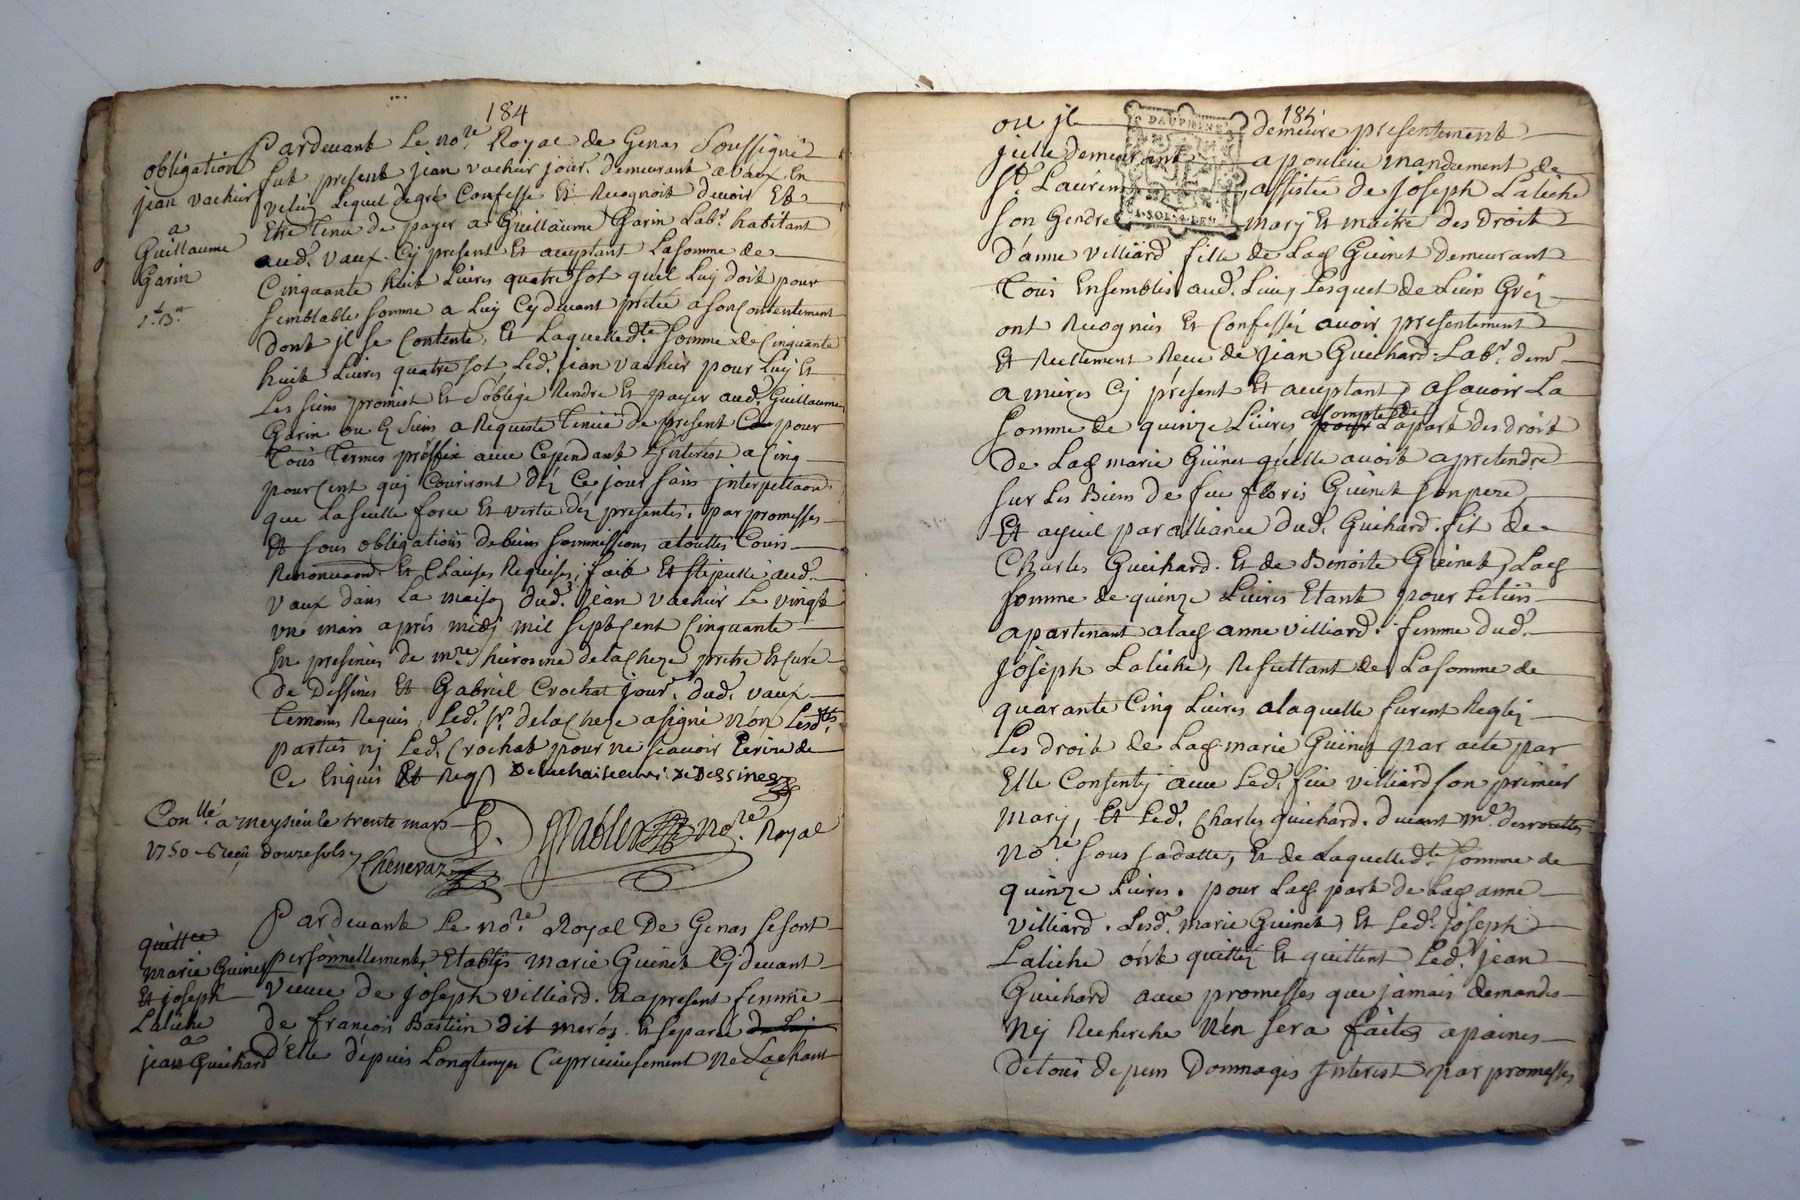 184
Pardevant Le no.re Royal de Genas Soussigné
fut present jean vachier jour.r demeurant a vaux En
velin Lequel degré Confesse Et Recognoit devoir Et
Etre tenu de payer a Guillaume Garin Lab.r habitant
aud.t vaux. Cy present Et aceptant La somme de
Cinquante huit Livres quatre sol quil Luy doit pour
semblable somme a Luy Cydevant prêtée a son Contentement
dont jl se Contente, Et Laquelled.te somme de Cinquante
huit Livres quatre sol, Led.t jean vachier pour Luy Et
Les siens promest Et s'oblige Rendre Et payer aud.t Guillaume
Garin ou siens a Requeste tenue de present pour
tous termes préffix avec Cependant L'jnterest a Cinq
pour Cent qui Couriront déz Ce jour sans jnterpellaon
que La seulle force Et vertu déz presentes. par promesses
Et sous obligations de biens sommissions a touttes Cours
Renonciaons Et Clauses Requises, fait Et stipullé aud.t
vaux dans La maison dud.t jean vachier Le vingt
un mars aprés midj mil sept Cent Cinquante
En presences de m.re hierosme delacheze pretre Et Curé
de Dessines Et Gabriel Crochat jour.r dud.t vaux
temoins Requis, Led.t s.r delacheze a signé Non Lesd.ttes
parties nj Led.t Crochat pour ne scavoir Ecrire de
Ce Enquis Et Reqs Delachaise curé De Dessines
obligation
jean vachier
a
Guillaume
Garin
Con.llé a meysieu le trente mars
1750 Reçu douze sols
Chenevaz
Pablier No.re Royal
Pardevant Le no.re Royal De Genas se sont
personnellement Etablis marie Guinet Cj devant
veuve de joseph villiard. Et a present femme
de francois Bastien dit meros. Et separée de Luj
d'Elle depuis Longtemps Ne Sachant
quittce
marie Guinet
Et joseph
Laliche
a
jean Guichard
185
ou jl demeure presentement
jcelle demeurant a poulieu mandement de
S.t Laurens assistée de joseph Laliche
son Gendre mary Et maitre des Droit
D'anne villiard fille de Laq Guinet Demeurant
tous Ensembles aud.t Lieu, Lesquel de Leur Gréz
ont Recognus Et Confesséz avoir presentement
Et Reellement Reçu de jean Guichard Lab.r dem.t
a miéres Cj present Et aceptant, a savoir La
somme de quinze Livres acompte de pour Lapart des droit
De Laq marie Guinet qu'elle avoit a pretendre
sur Les Biens de feu floris Guinet son pere
Et aquil par alliance dud.t Guichard. fils de
Charles Guichard. Et de Benoite Guinet, Laq
somme de quinze Livres Etant pour Le tiers
apartenant a laq anne villiard. femme dud.t
joseph Laliche, Resultant de La somme de
quarante Cinq Livres a laquelle furent Regléz
Les droit de Laq marie Guinet par acte par
Elle Consenty avec Led.t feu villiard son premier
mary, Et Led.t Charles guichard. devant m.e desroulles
No.re sous sa datte, Et de Laquelled.te somme de
quinze Livres. pour Laq part de Laq anne
villiard. Lesd.t marie Guinet, Et Led.t joseph
Laliche ont quittéz Et quittent Led.t jean
Guichard avec promesses que jamais demandes
Nj Recherche N'en sera faites a paines
De tous depens Dommages jnterest par promesses
DAUPHINE